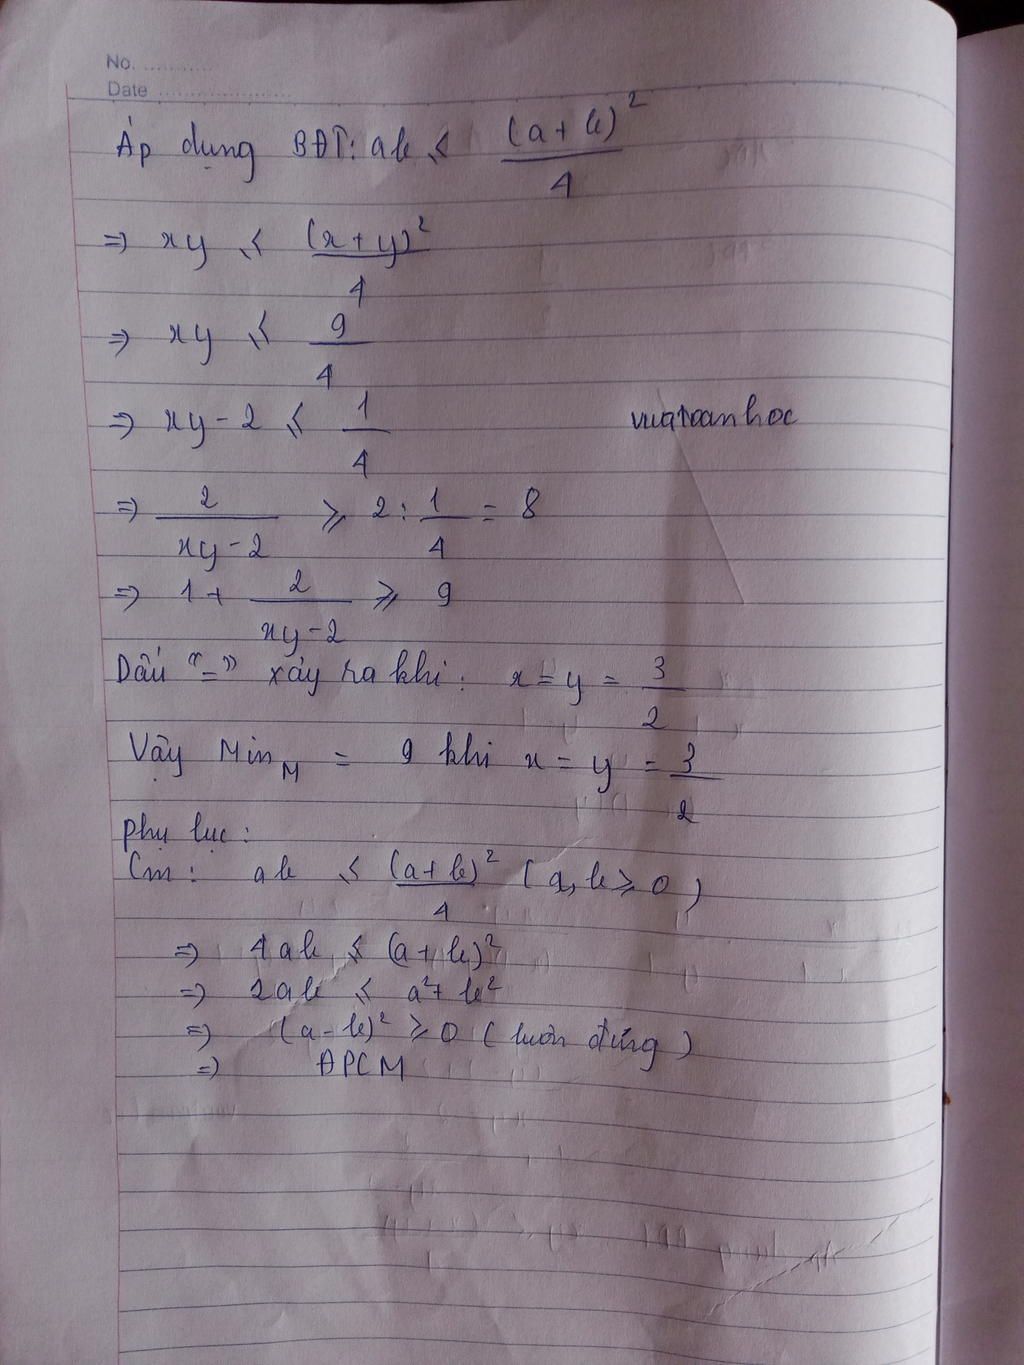 No. ............
Date ........................
Áp dụng BĐT: ab ≤ (a+b)²/4
⇒ xy ≤ (x+y)²/4
⇒ xy ≤ 9/4
⇒ xy - 2 ≤ 1/4
vuatoanhoc
⇒ 2/(xy-2) ≥ 2 : 1/4 = 8
⇒ 1 + 2/(xy-2) ≥ 9
Dấu "=" xảy ra khi: x = y = 3/2
Vậy Min_M = 9 khi x = y = 3/2
Phụ lục:
Cm: ab ≤ (a+b)²/4 (a, b ≥ 0)
⇒ 4ab ≤ (a+b)²
⇒ 2ab ≤ a² + b²
⇒ (a-b)² ≥ 0 (luôn đúng)
⇒ ĐPCM